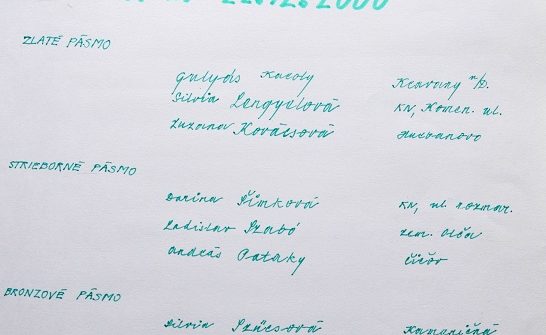 2000
ZLATÉ PÁSMO
Gulyás Karoly Kcavany n/D.
Silvia Lengyelová KN, Komen. ul.
Zuzana Kovácsová Hurbanovo
STRIEBORNÉ PÁSMO
Darina Šimková KN, ul. rozmar.
Ladislav Szabó Zem. Olča
András Pataky Čičov
BRONZOVÉ PÁSMO
Silvia Szücsová Kameničná